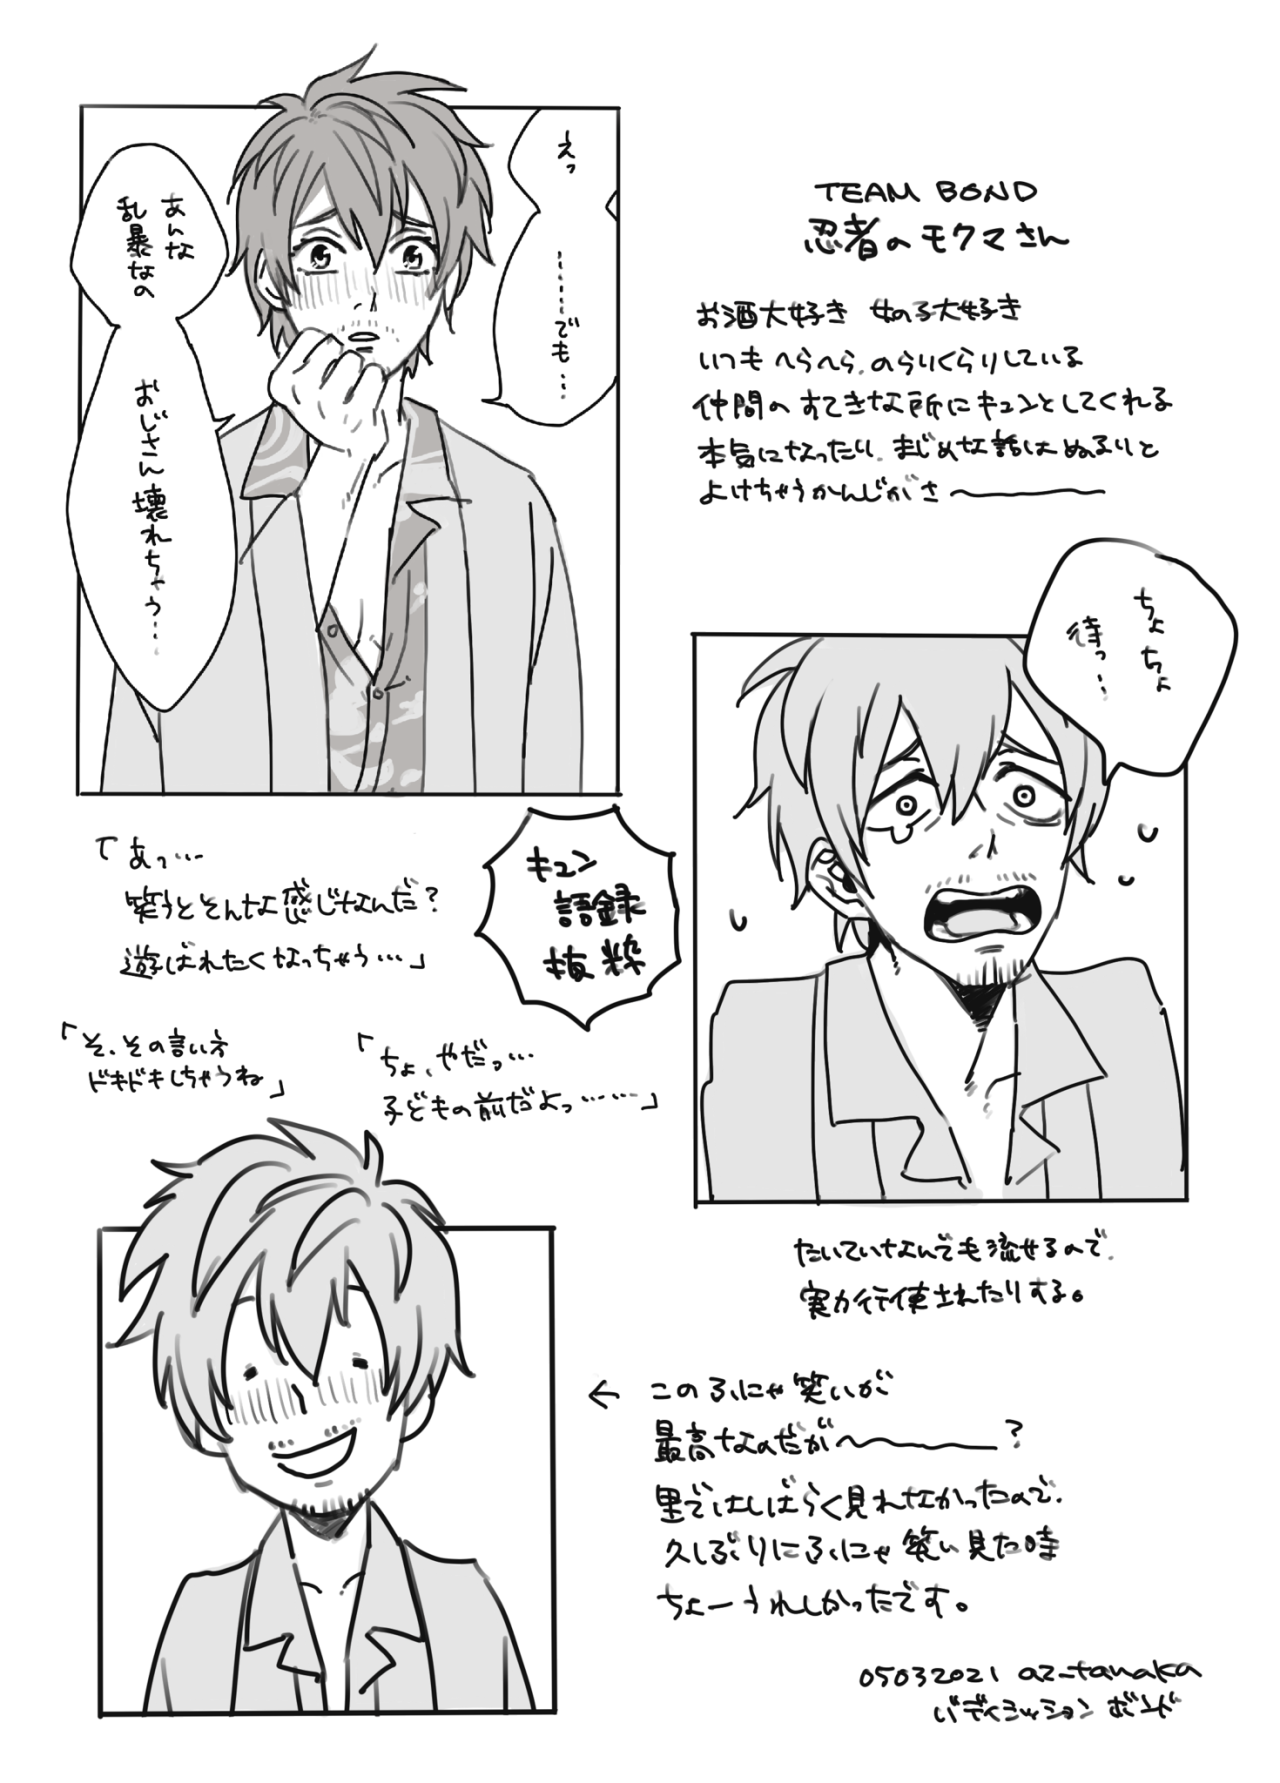 えっ
……でも…
あんな
乱暴なの
おじさん壊れちゃう…
TEAM BOND
忍者のモクマさん
お酒大好き 女の子大好き
いつもへらへら、のらりくらりしている
仲間のすてきな所にキュンとしてくれる
本気になったり、まじめな話はぬるりと
よけちゃうかんじがさ〜
ちょちょ
待っ…
キュン
語録
抜粋
「あっ…
笑うとそんな感じなんだ?
遊ばれたくなっちゃう…」
「そ、その言い方
ドキドキしちゃうね」
「ちょ、やだっ…
子どもの前だよっ……」
たいていなんでも流せるので、
実力行使されたりする。
← このふにゃ笑いが
最高なのだが〜?
里ではしばらく見れなかったので、
久しぶりにふにゃ笑い見た時
ちょーうれしかったです。
05032021 az-tanaka
バディミッションボンド